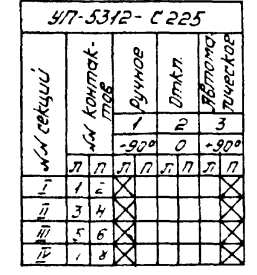 УП-5312-С225
№№ секций
№№ контак-
тов
Ручное
Откл.
Автома-
тическое
1 2 3
-90° 0 +90°
л п л п л п л п
I 1 2
II 3 4
III 5 6
IV 7 8